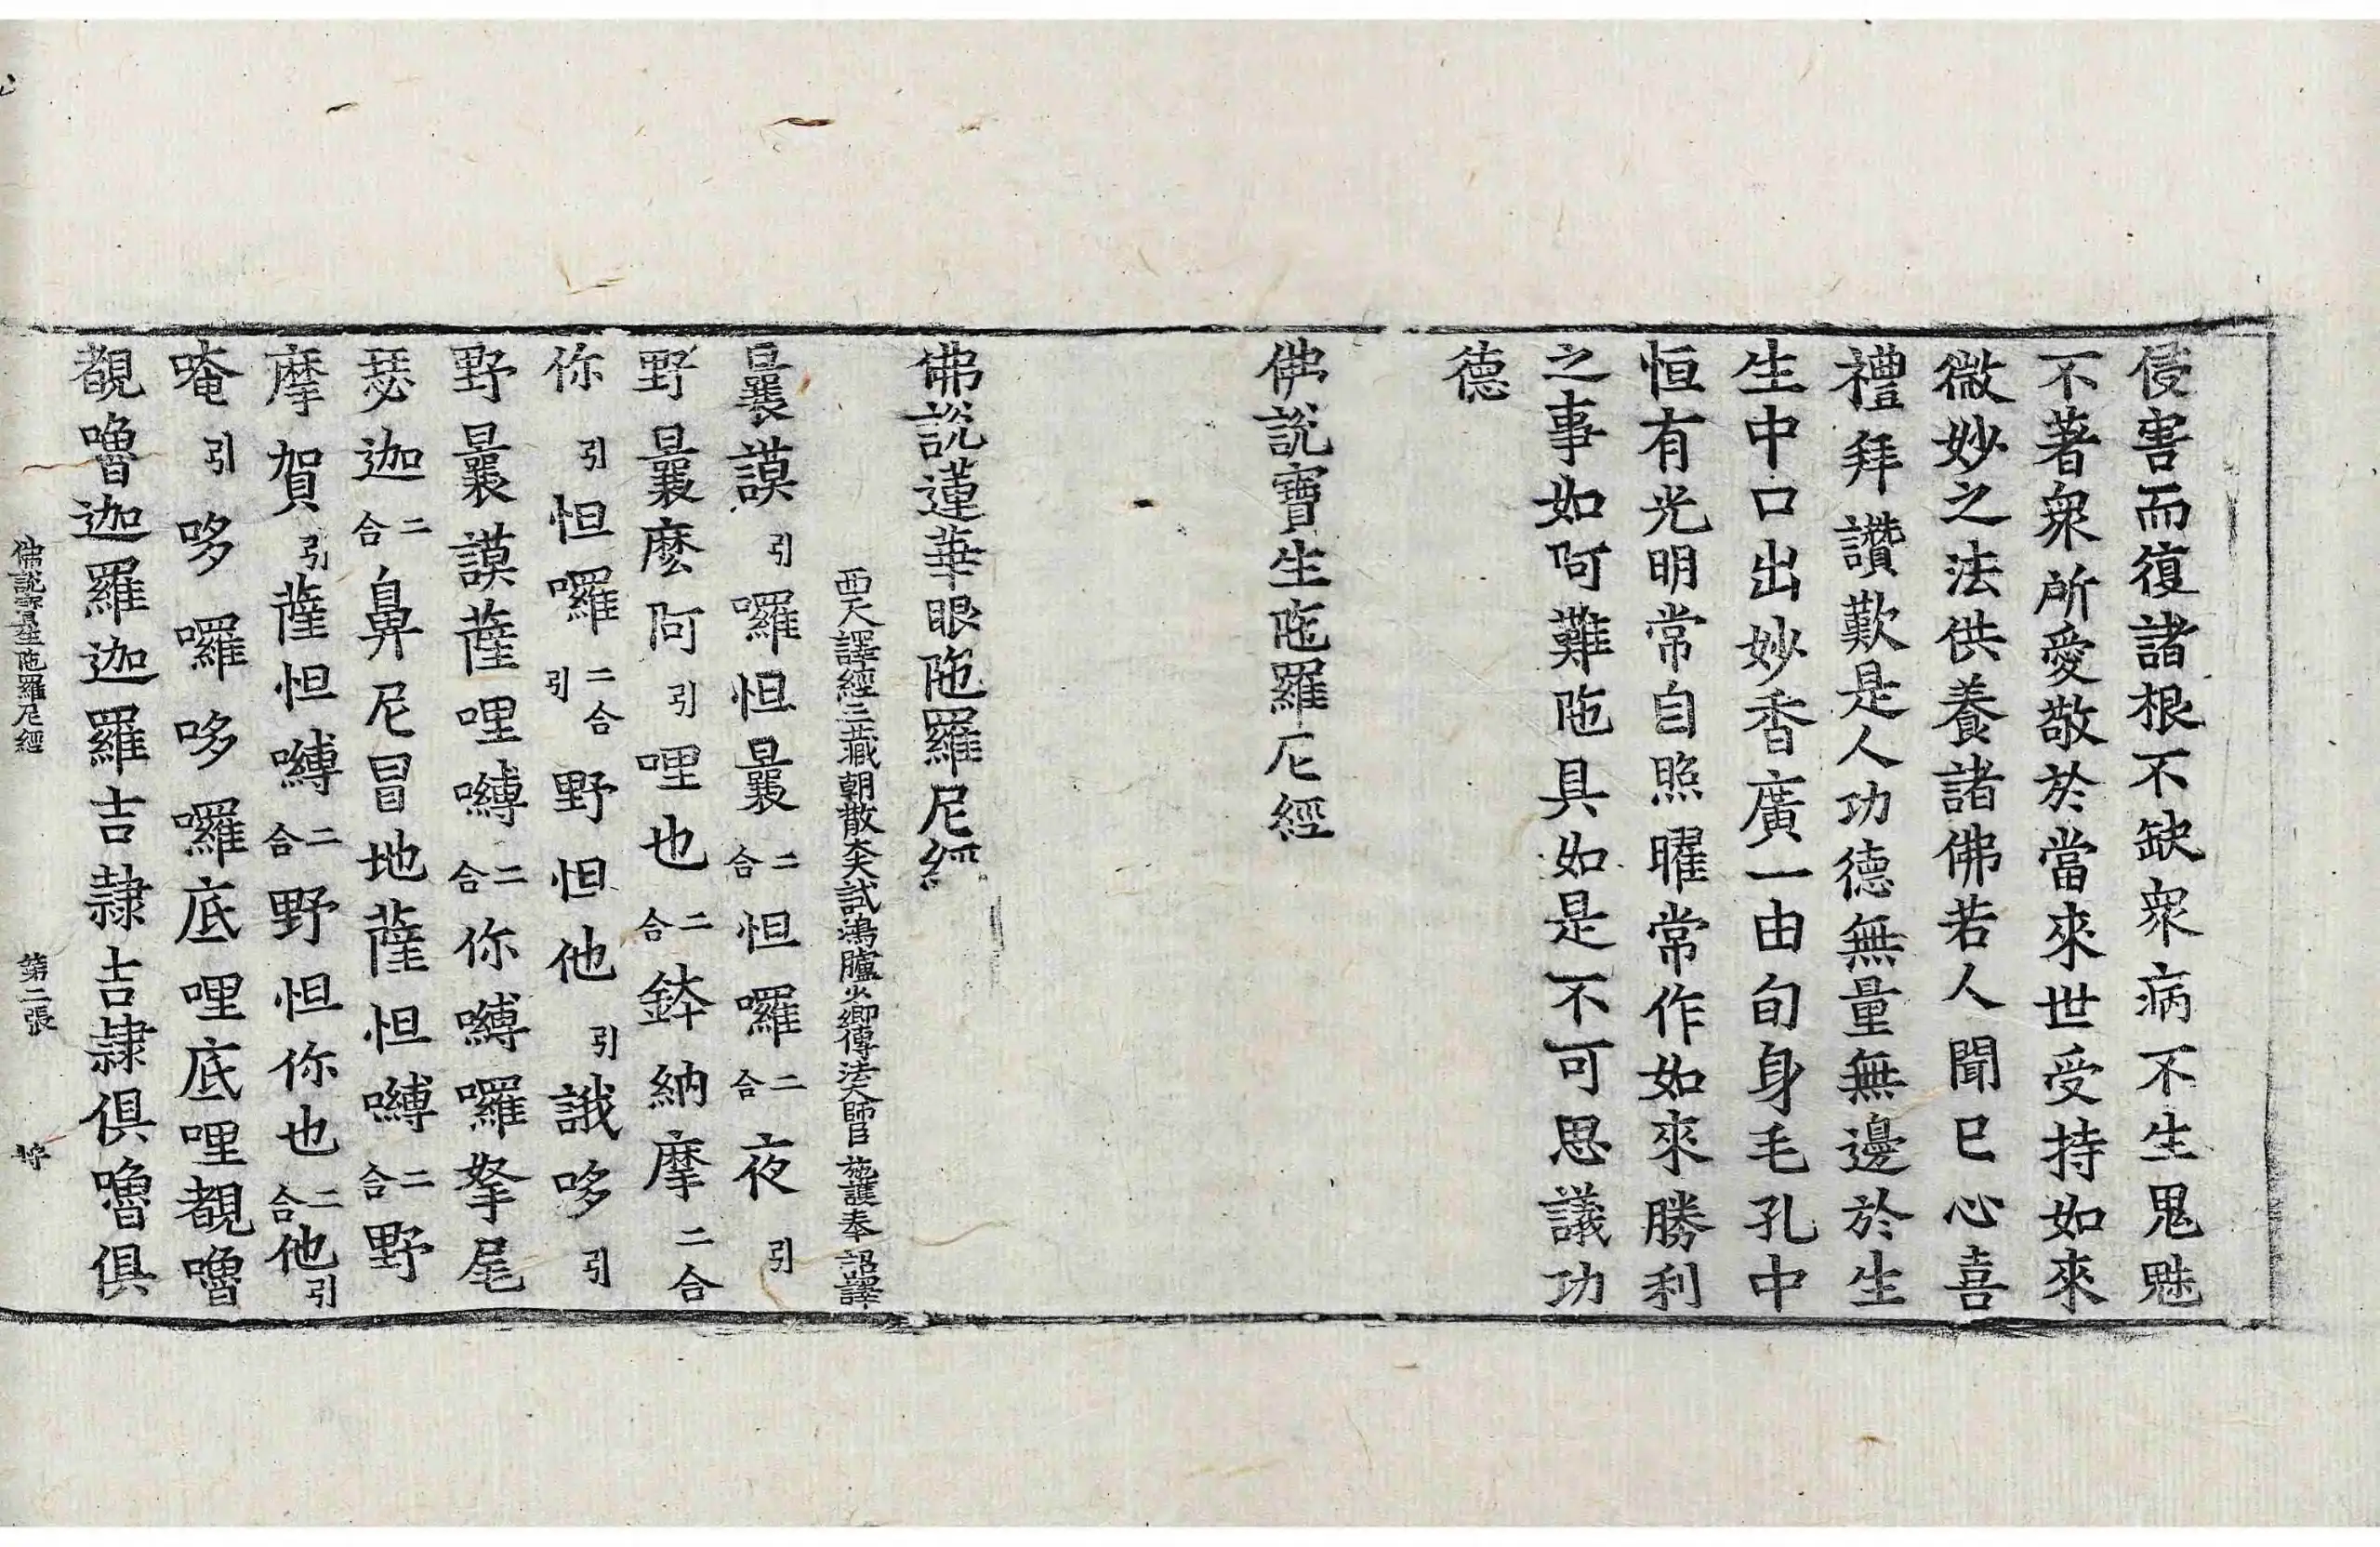 侵害而復諸根不缺衆病不生鬼魅
不著衆所愛敬於當來世受持如來
微妙之法供養諸佛若人聞已心喜
禮拜讚歎是人功德無量無邊於生
生中口出妙香廣一由旬身毛孔中
恒有光明常自照曜常作如來勝利
之事如阿難陁具如是不可思議功
德
佛說寶生陁羅尼經
佛說蓮華眼陁羅尼經
西天譯經三藏朝散大夫試鴻臚少卿傳法大師臣施護奉 詔譯
曩謨引囉怛曩二合怛囉二合夜引
野曩麽阿引哩也二合鉢納摩二合
你引怛囉二合引野怛他引誐哆引
野曩謨薩哩嚩二合你嚩囉拏尾
瑟迦二合鼻尼冒地薩怛嚩二合野
摩賀引薩怛嚩二合野怛你也二合他引
唵引哆囉哆囉底哩底哩覩嚕
覩嚕迦羅迦羅吉隷吉隷俱嚕俱
佛說寶生陁羅尼經 第二張